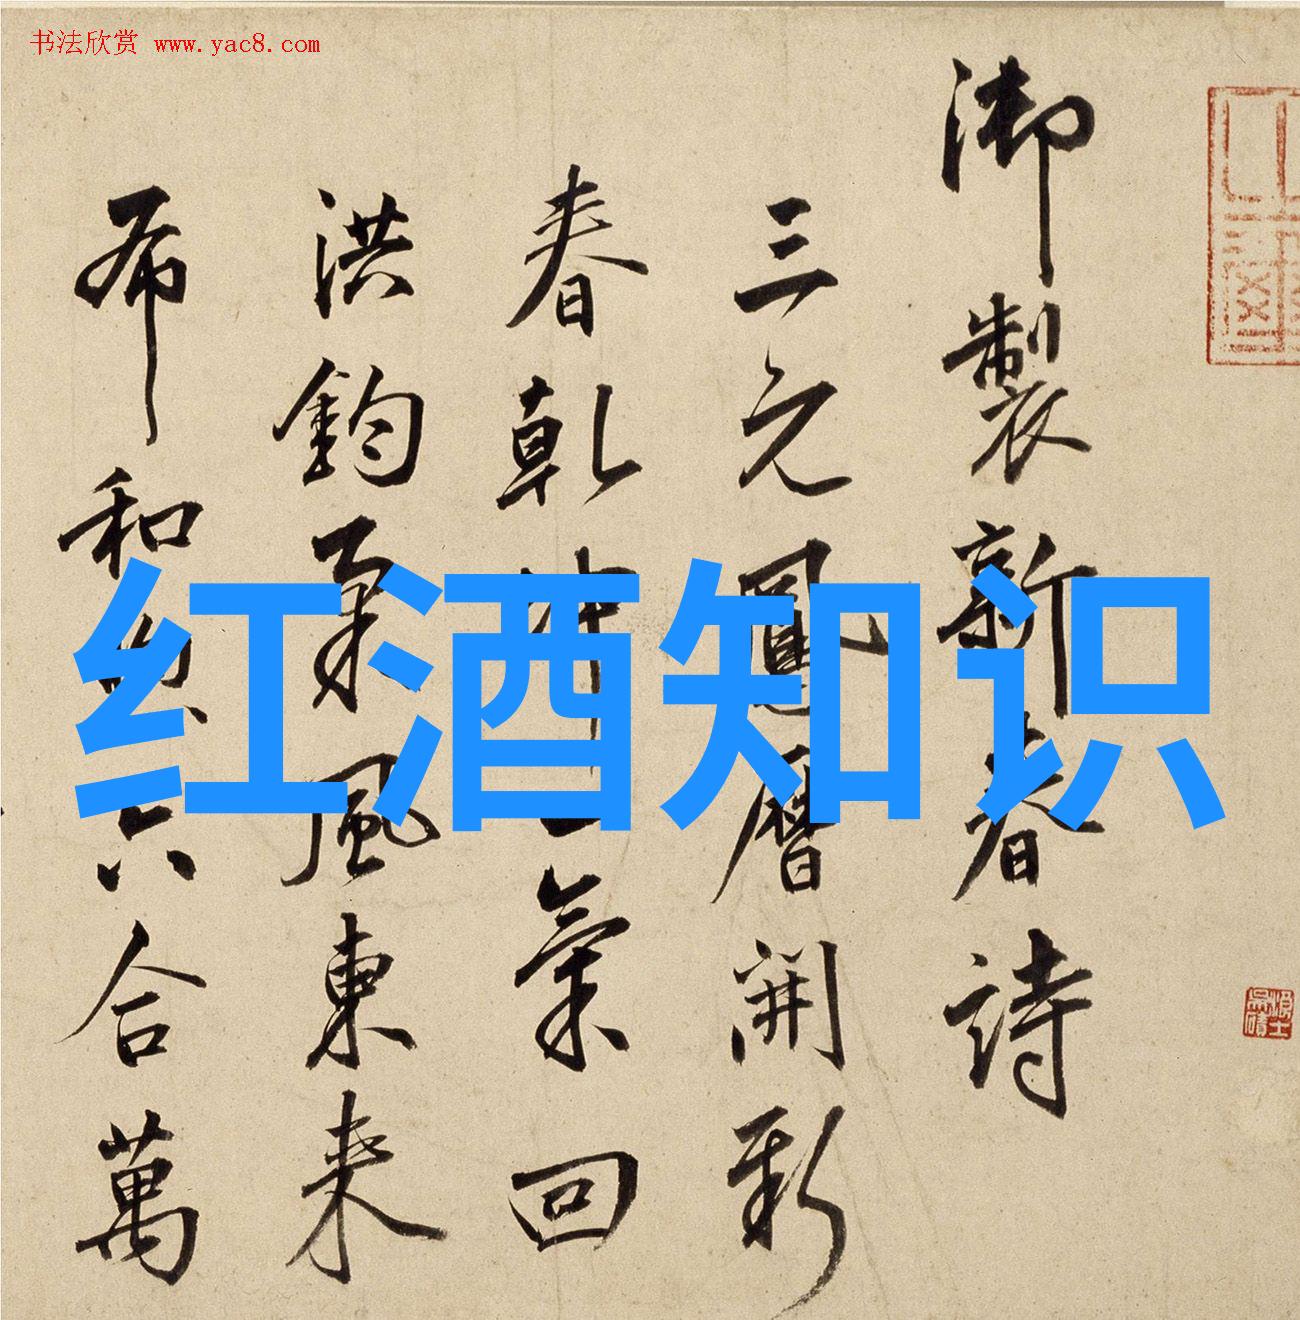 书法欣赏 www.yac8.com
红酒知识
御製新春詩
三元鳳曆開新
春乾坤一氣回
洪鈞風東來
布和六合萬